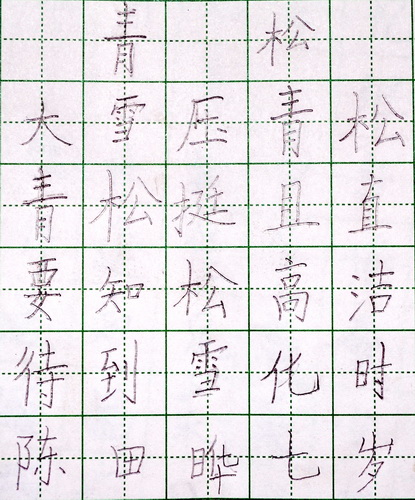 青松
大雪压青松
青松挺且直
要知松高洁
待到雪化时
陈田晔七岁